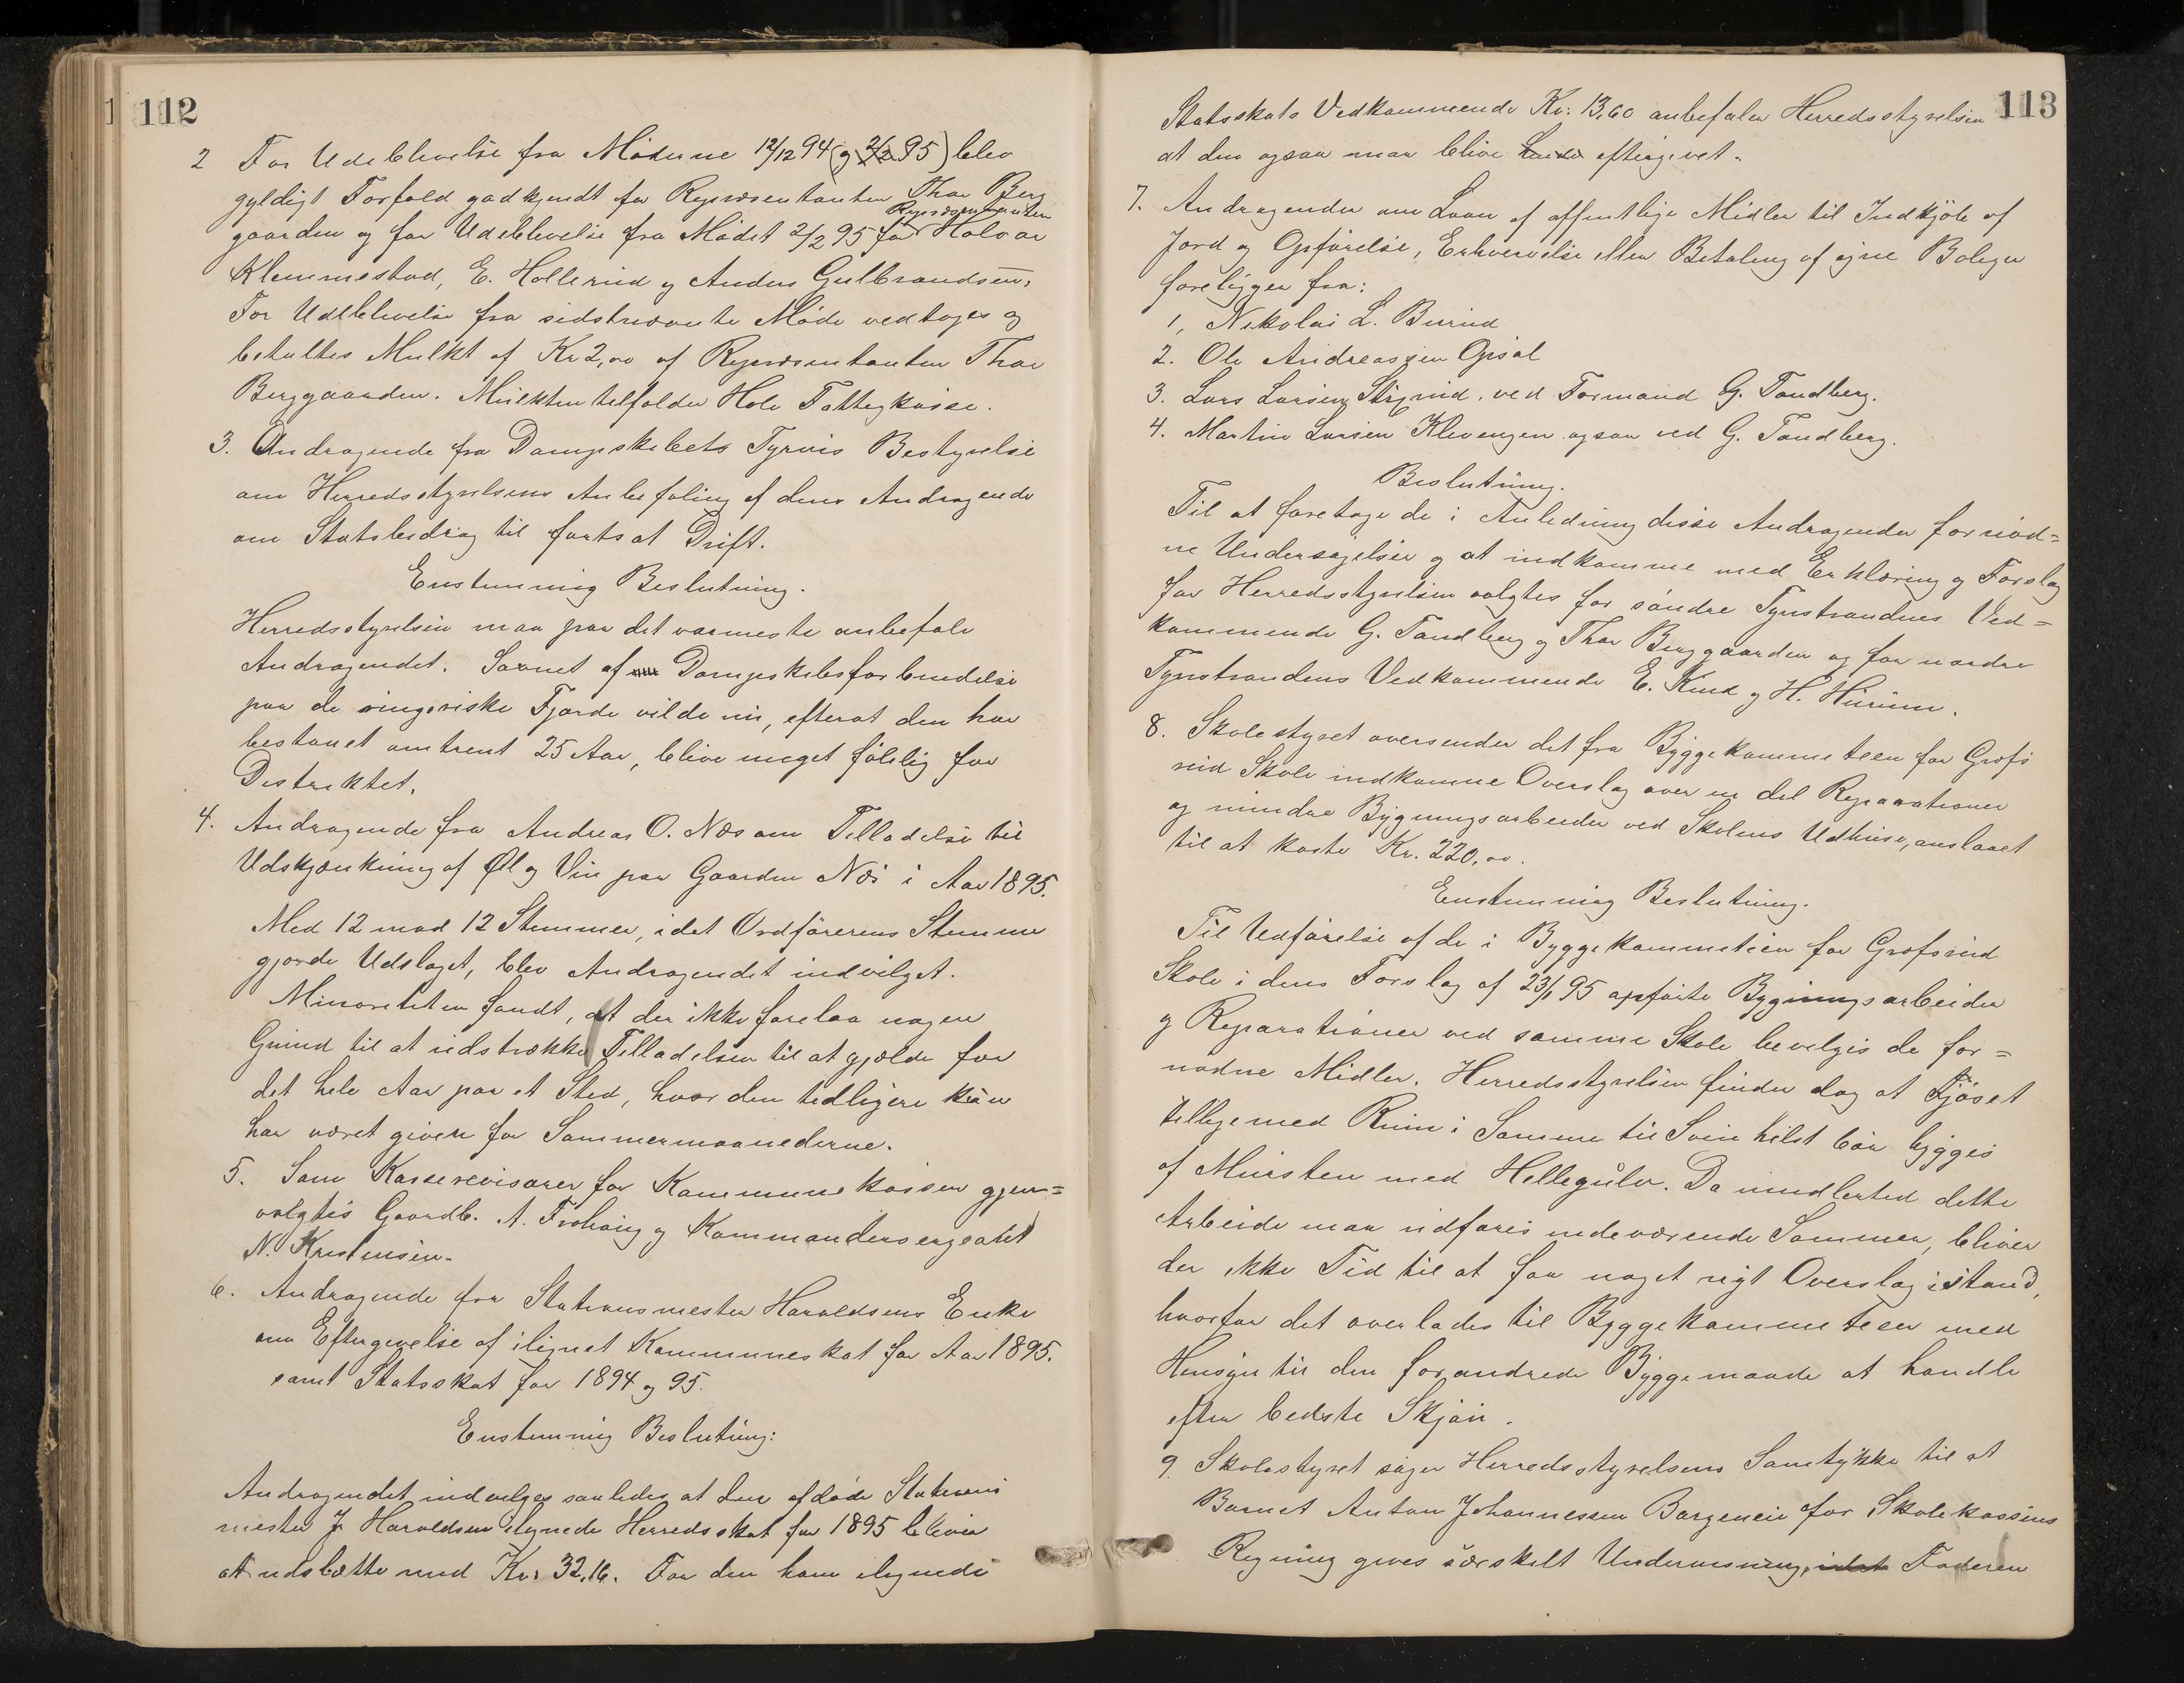 112
2 For Udeblivelse fra Møderne 12/12 94 (og 2/2 95) blev
gyldigt Forfald godkjendt for Repræsentanten Thor Berg
gaarden og for Udeblivelse fra Mødet 2/2 95 for Repræsentanten Halvor
Klemmestad, E. Hollerud og Anders Gulbrandsen.
For Udeblivelse fra sidstnævnte Møde vedtoges og
betaltes Mulkt af Kr 2,00 af Repræsentanten Thor
Berggaarden. Mulkten tilfalder Hole Fattigkasse.
3. Andragende fra Dampskibets Tyrvis Bestyrelse
om Herredsstyrelsens Anbefaling af dens Andragende
om Statsbidrag til fortsat Drift.
Enstemmig Beslutning.
Herredsstyrelsen maa paa det varmeste anbefale
Andragendet. Savnet af Dampskibsforbindelse
paa de ringeriske Fjorde vilde nu, efterat den har
bestaaet omtrent 25 Aar, blive meget følelig for
Distriktet.
4. Andragende fra Andreas O. Næs om Tilladelse til
Udskjænkning af Øl og Vin paa Gaarden Næs i Aar 1895.
Med 12 mod 12 Stemmer, idet Ordførerens Stemme
gjorde Udslaget, blev Andragendet indvilget.
Minoriteten fandt, at der ikke forelaa nogen
Grund til at udstrække Tilladelsen til at gjælde for
det hele Aar paa et Sted, hvor den tidligere kun
har været given for Sommermaanederne.
5. Som Kasserevisorer for Kommunekassen gjen=
valgtes Gaardb. A. Frøhaug og Kommandersergeant
N. Kristensen.
6. Andragende fra Stationsmester Haraldsens Enke
om Eftergivelse af ilignet Kommuneskat for Aar 1895.
samt Statsskat for 1894 og 95.
Enstemmig Beslutning:
Andragendet indvilges saaledes at den afdøde Stations
mester J. Haraldsen ilignede Herredsskat for 1895 bliver
at udsætte med Kr. 32,16. For den ham ilignede
113
Statsskats Vedkommende Kr: 13,60 anbefaler Herredsstyrelsen
at den ogsaa maa blive eftergivet.
7. Andragender om Laan af offentlige Midler til Indkjøb af
Jord og Opførelse, Erhvervelse eller Betaling af egne Boliger
foreligger fra:
1, Nikolai L. Burud
2. Ole Andreassen Opsal
3. Lars Larsen, ved Formand G. Tandberg.
4. Martin Larsen Klevengen ogsaa ved G. Tandberg.
Beslutning.
Til at foretage de i Anledning disse Andragender fornød=
ne Undersøgelser og at indkomme med Erklæring og Forslag
for Herredsstyrelsen valgtes for søndre Tyristrandens Ved=
kommende G. Tandberg og Thor Berggaarden og for nordre
Tyristrandens Vedkommende E. Kind og H. Hurum.
8. Skolestyret oversender det fra Byggekommiteen for Grøfs
rud Skole indkomne Overslag over en del Reparationer
og mindre Bygningsarbeider ved Skolens Udhuse, anslaaet
til at koste Kr. 220,00.
Enstemmig Beslutning.
Til Udførelse af de i Byggekommiteen for Grøfsrud
Skole i dens Forslag af 23/1 95 opførte Bygningsarbeider
og Reparationer ved samme Skole bevilges de for=
nødne Midler. Herredsstyrelsen finder dog at Fjøset
tilligemed Rum i Samme til Svin helst bør bygges
af Mursten med Hellegulv. Da imidlertid dette
Arbeide maa udføres indeværende Sommer, bliver
der ikke Tid til at faa noget nyt Overslag istand,
hvorfor det overlades til Byggekommiteen med
Hensyn til den forandrede Byggemaade at handle
efter bedste Skjøn.
9. Skolestyret søger Herredsstyrelsens Samtykke til at
Barnet Anton Johannessen Borgeneie for Skolekassens
Regning gives særskilt Undervisning, idet Faderen